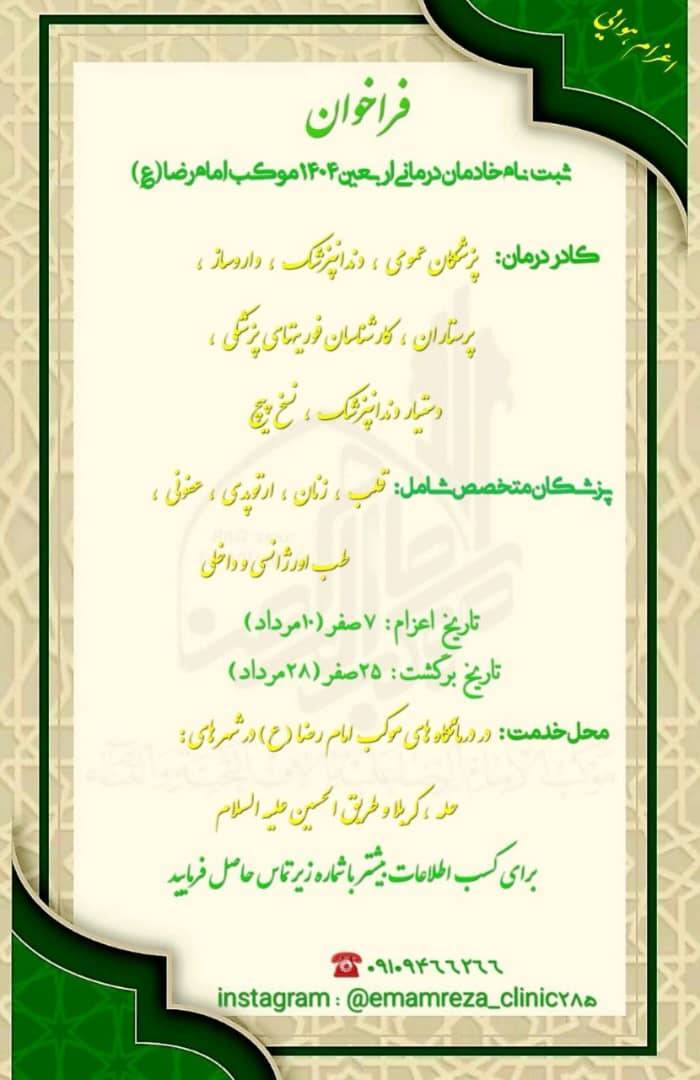 اعزام هوایی
فراخوان
ثبت نام خادمان درمانی اربعین ۱۴۰۴ موکب امام رضا (ع)
کادر درمان: پزشکان عمومی ، دندانپزشک ، داروساز ،
پرستاران ، کارشناسان فوریتهای پزشکی ،
دستیار دندانپزشک ، نسخ پیچ
پزشکان متخصص شامل: قلب ، زنان ، ارتوپدی ، عفونی ،
طب اورژانسی و داخلی
تاریخ اعزام: ۷ صفر (۱۰مرداد)
تاریخ برگشت: ۲۵ صفر (۲۸مرداد)
محل خدمت: در درمانگاه های موکب امام رضا (ع) در شهر های:
حله ، کربلا و طریق الحسین علیه السلام
برای کسب اطلاعات بیشتر با شماره زیر تماس حاصل فرمایید
۰۹۱۰۹۴۶۶۲۶۶
instagram : @emamreza_clinic۲۸۵